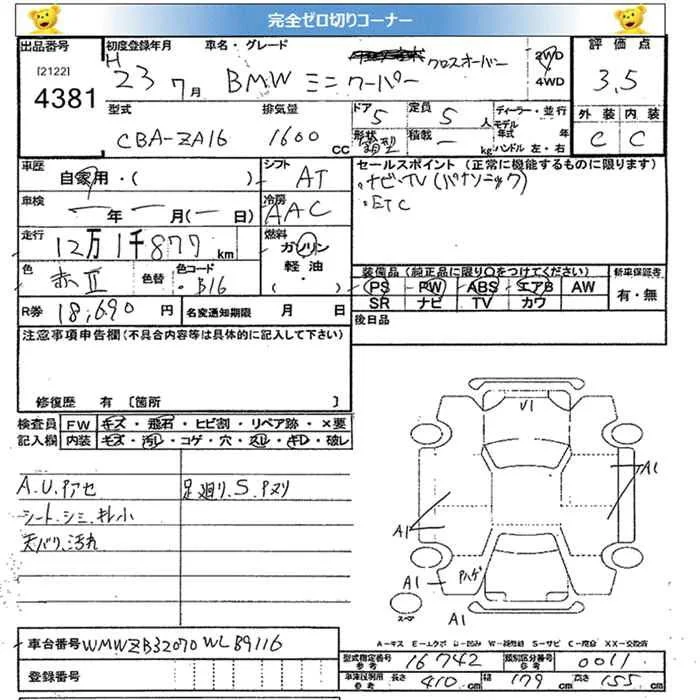 完全ゼロ切りコーナー
出品番号 初度登録年月 車名・グレード 評価点
[2122] 4381 H 23 7月 BMW ミニ クーパー クロスオーバー 2WD 4WD 3.5
型式 排気量 ドア 5 定員 5人 ディーラー・並行 外装 内装
CBA-ZA16 1600cc 形状 箱型 積載 ー kg モデル年式 年 ハンドル 左・右 C C
車歴 自家用・( ) シフト AT セールスポイント (正常に機能するものに限ります)
車検 ー年 ー月(ー日) 冷房 AAC ナビ・TV(パナソニック)
走行 12万1千877km 燃料 ガソリン 軽油 ( ) ETC
色 赤II 色替 色コード B16 装備品(純正品に限り○をつけてください) 新車保証書
PS PW ABS エアB AW 有・無
SR ナビ TV カワ
R券 18,690円 名変通知期限 月 日 後日品
注意事項申告欄(不具合内容等は具体的に記入して下さい)
修復歴 有 [箇所 ]
検査員 FW キズ・飛石・ヒビ割・リペア跡・×要
記入欄 内装 キズ・汚レ・コゲ・穴・スレ・キレ・破レ
A.U.アセ 足廻り.S.ヌリ
シート.シミ.キレ小
天バリ.汚れ
V1
A1
A1
A1 ハゲ
A1
スペア
A-キス E-エクボ U-凹み W-補修跡 S-サビ C-腐食 XX-交換済
車台番号 WMWZB32070WL89116
型式指定番号 参考 16742 類別区分番号 参考 0011
登録番号 車庫証明用 参考 長さ 410cm 幅 179cm 高さ 155cm